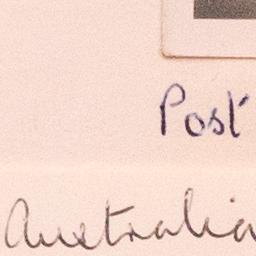 Post
Australia